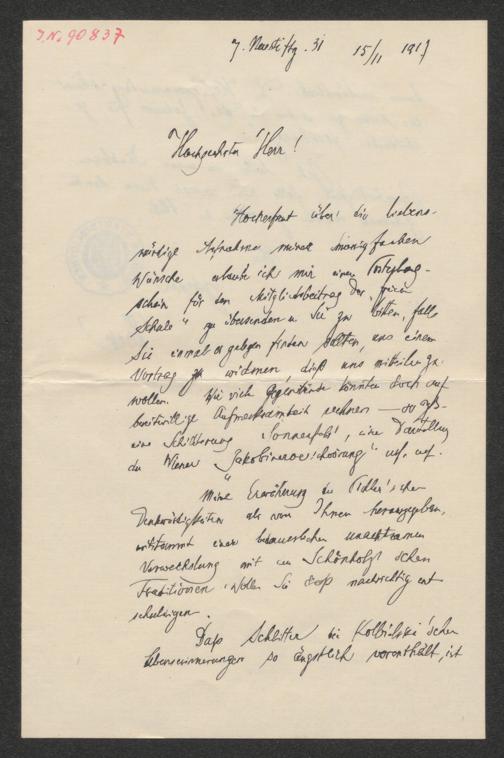 J.N. 90837
7. Neustiftg. 31 15/11 1917
Hochgeehrter Herr!
Hocherfreut über die liebens-
würdige Aufnahme meiner
Wünsche erlaube ich mir einen Posterlag-
schein für den Mitgliedsbeitrag der „freien
Schule" zu übersenden u. Sie zu bitten, falls
Sie einmal gelegen finden sollten, uns einem
Vortrag zu widmen, dieß uns mitteilen zu
wollen. Wie viele Gegenstände könnten doch auf
bereitwillige Aufmerksamkeit rechnen — so
eine Schilderung Sonnenfels', eine Darstellung
der Wiener „Jakobinerverschwörung" usf. usf.
Meine Erwähnung der Fidler'schen
Denkwürdigkeiten als von Ihnen herausgegeben,
entstammt einer bedauerlichen
Verwechslung mit den Schönholz'schen
Traditionen. Wollen Sie das nachsichtig ent
schuldigen.
Daß Schlitter die Kolbielski'schen
Lebenserinnerungen so ängstlich vorenthält, ist